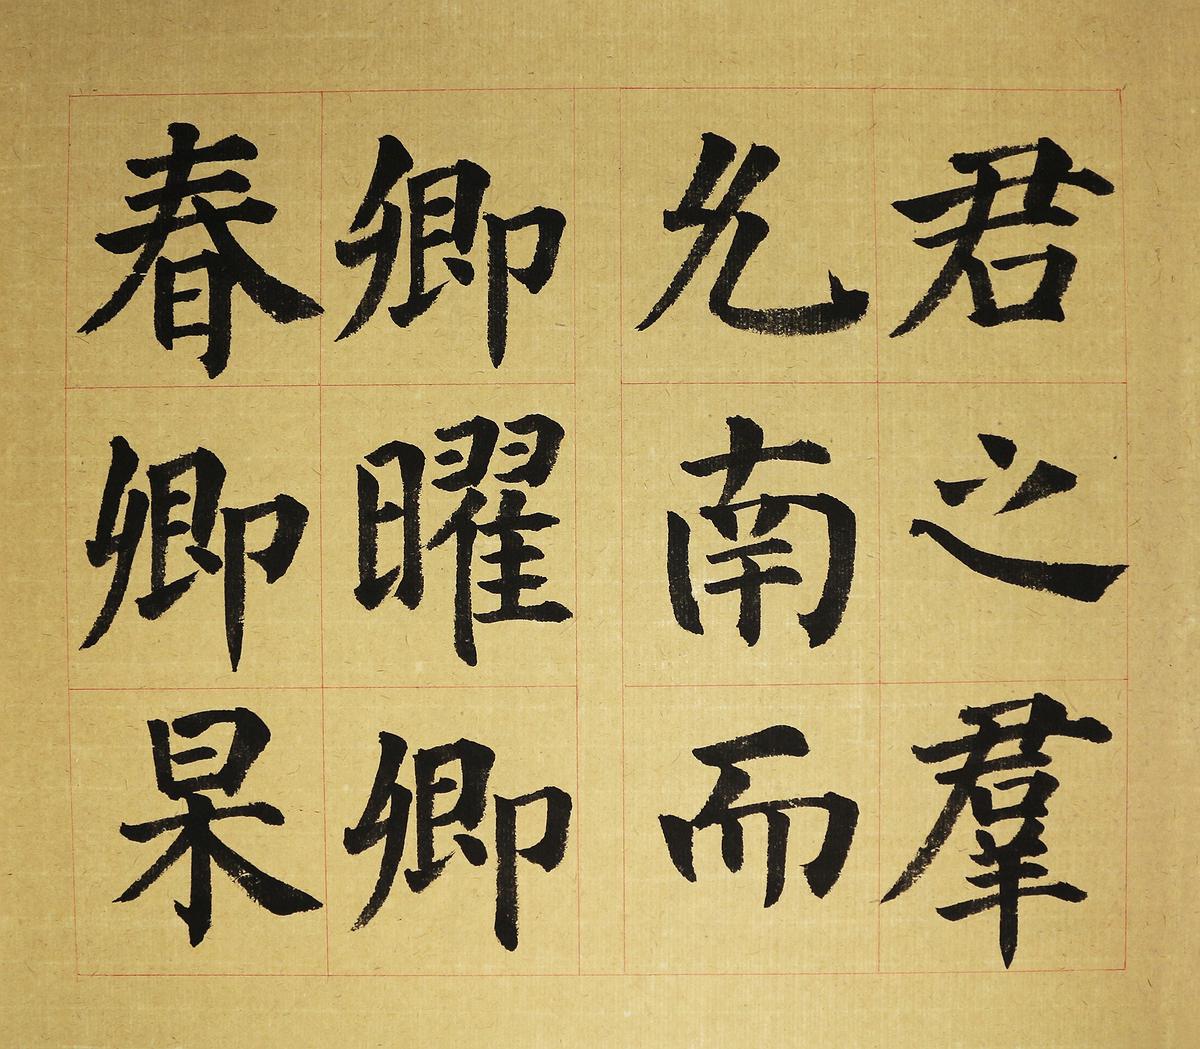 君之羣
允南而
卿曜卿
春卿杲